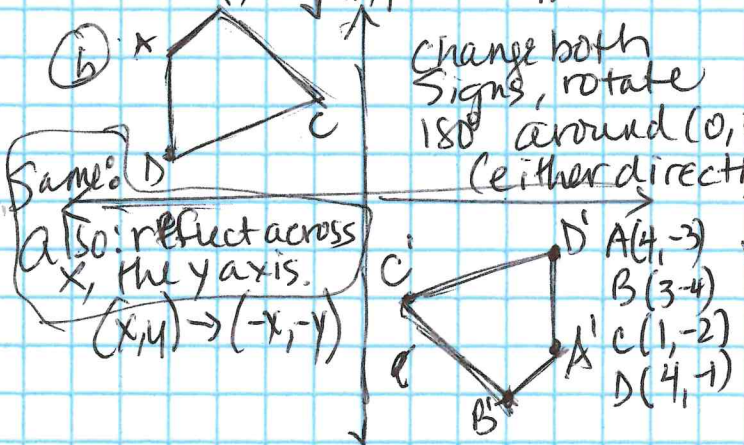 b
A
C
D
change both
signs, rotate
180° around (0,
(either direct
Same:
also: reflect across
x, the y axis.
(x,y) → (-x,-y)
D' A(4,-3)
B(3-4)
C'
A' C(1,-2)
D(4,-1)
B'